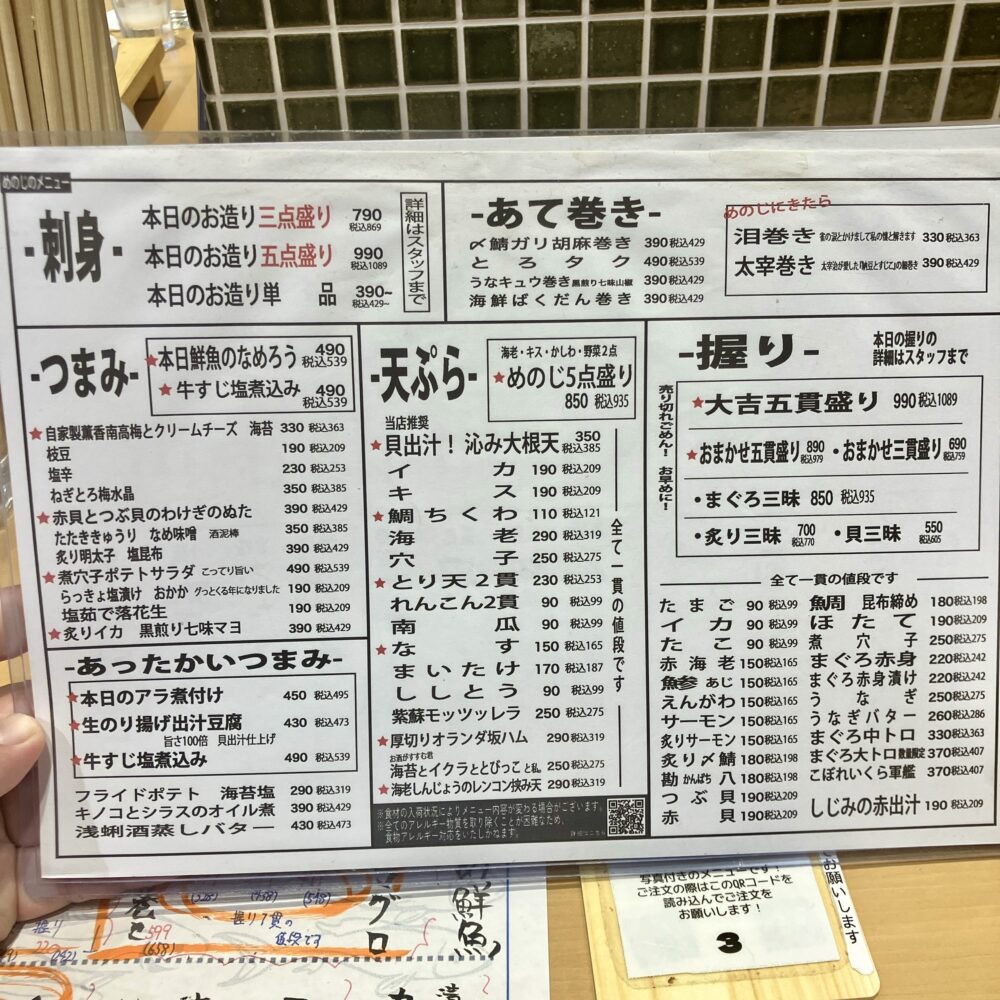 めのじのメニュー
-刺身-
本日のお造り三点盛り 790 税込869
本日のお造り五点盛り 990 税込1089
本日のお造り単品 390~ 税込429~
詳細はスタッフまで
-あて巻き-
〆鯖ガリ胡麻巻き 390税込429
とろタク 490税込539
うなキュウ巻き 黒煎り七味山椒 390税込429
海鮮ばくだん巻き 390税込429
めのじにきたら
泪巻き 雀の涙とかけまして私の懐と解きます 330税込363
太宰巻き 太宰治が愛した『納豆とすじこ』の細巻き 390税込429
-つまみ-
★本日鮮魚のなめろう 490 税込539
★牛すじ塩煮込み 490 税込539
★自家製薫香南高梅とクリームチーズ 海苔 330 税込363
枝豆 190 税込209
塩辛 230 税込253
ねぎとろ梅水晶 350 税込385
★赤貝とつぶ貝のわけぎのぬた 390 税込429
たたききゅうり なめ味噌 酒泥棒 350 税込385
炙り明太子 塩昆布 390 税込429
★煮穴子ポテトサラダ こってり旨い 490 税込539
らっきょ塩漬け おかか グッとくる年になりました 190 税込209
塩茹で落花生 190 税込209
★炙りイカ 黒煎り七味マヨ 390 税込429
-あったかいつまみ-
★本日のアラ煮付け 450 税込495
★生のり揚げ出汁豆腐 430 税込473
旨さ100倍 貝出汁仕上げ
★牛すじ塩煮込み 490 税込539
フライドポテト 海苔塩 290 税込319
キノコとシラスのオイル煮 390 税込429
浅蜊酒蒸しバター 430 税込473
-天ぷら-
海老・キス・かしわ・野菜2点
★めのじ5点盛り
850 税込935
当店推奨
★貝出汁！沁み大根天 350 税込385
イカ 190 税込209
キス 190 税込209
★鯛ちくわ 110 税込121
海老 290 税込319
穴子 250 税込275
★とり天2貫 230 税込253
れんこん2貫 90 税込99
南瓜 90 税込99
★なす 150 税込165
まいたけ 170 税込187
ししとう 90 税込99
全て一貫の値段です
紫蘇モッツァレラ 250 税込275
★厚切りオランダ坂ハム 290税込319
お酒がすすむ君
海苔とイクラととびっこ と私。 250税込275
★海老しんじょうのレンコン挟み天 290税込319
※食材の入荷状況によりメニュー内容が変わる場合がございます。
※全てのアレルギー物質を取り除くことが困難なため、
食物アレルギー対応をいたしかねます。
詳細はこちら
-握り-
本日の握りの
詳細はスタッフまで
売り切れごめん！お早めに！
★大吉五貫盛り 990税込1089
★おまかせ五貫盛り 890 税込979 ・おまかせ三貫盛り 690 税込759
・まぐろ三昧 850 税込935
・炙り三昧 700 税込770 ・貝三昧 550 税込605
全て一貫の値段です
たまご 90 税込99
イカ 90 税込99
たこ 90 税込99
赤海老 150税込165
鯵 あじ 150税込165
えんがわ 150税込165
サーモン 150税込165
炙りサーモン 150税込165
炙り〆鯖 180税込198
勘八 かんぱち 180税込198
つぶ貝 190税込209
赤貝 190税込209
鯛 昆布締め 180税込198
ほたて 190税込209
煮穴子 250税込275
まぐろ赤身 220税込242
まぐろ赤身漬け 220税込242
うなぎ 250税込275
うなぎバター 260税込286
まぐろ中トロ 330税込363
まぐろ大トロ 数量限定 370税込407
こぼれいくら軍艦 370税込407
しじみの赤出汁 190 税込209
写真付きのメニューです！
ご注文の際はこのQRコードを
読み込んでご注文を
お願いします！
3
お願いします
鮮魚
グロ
握り1貫の
値段です
599
(658)